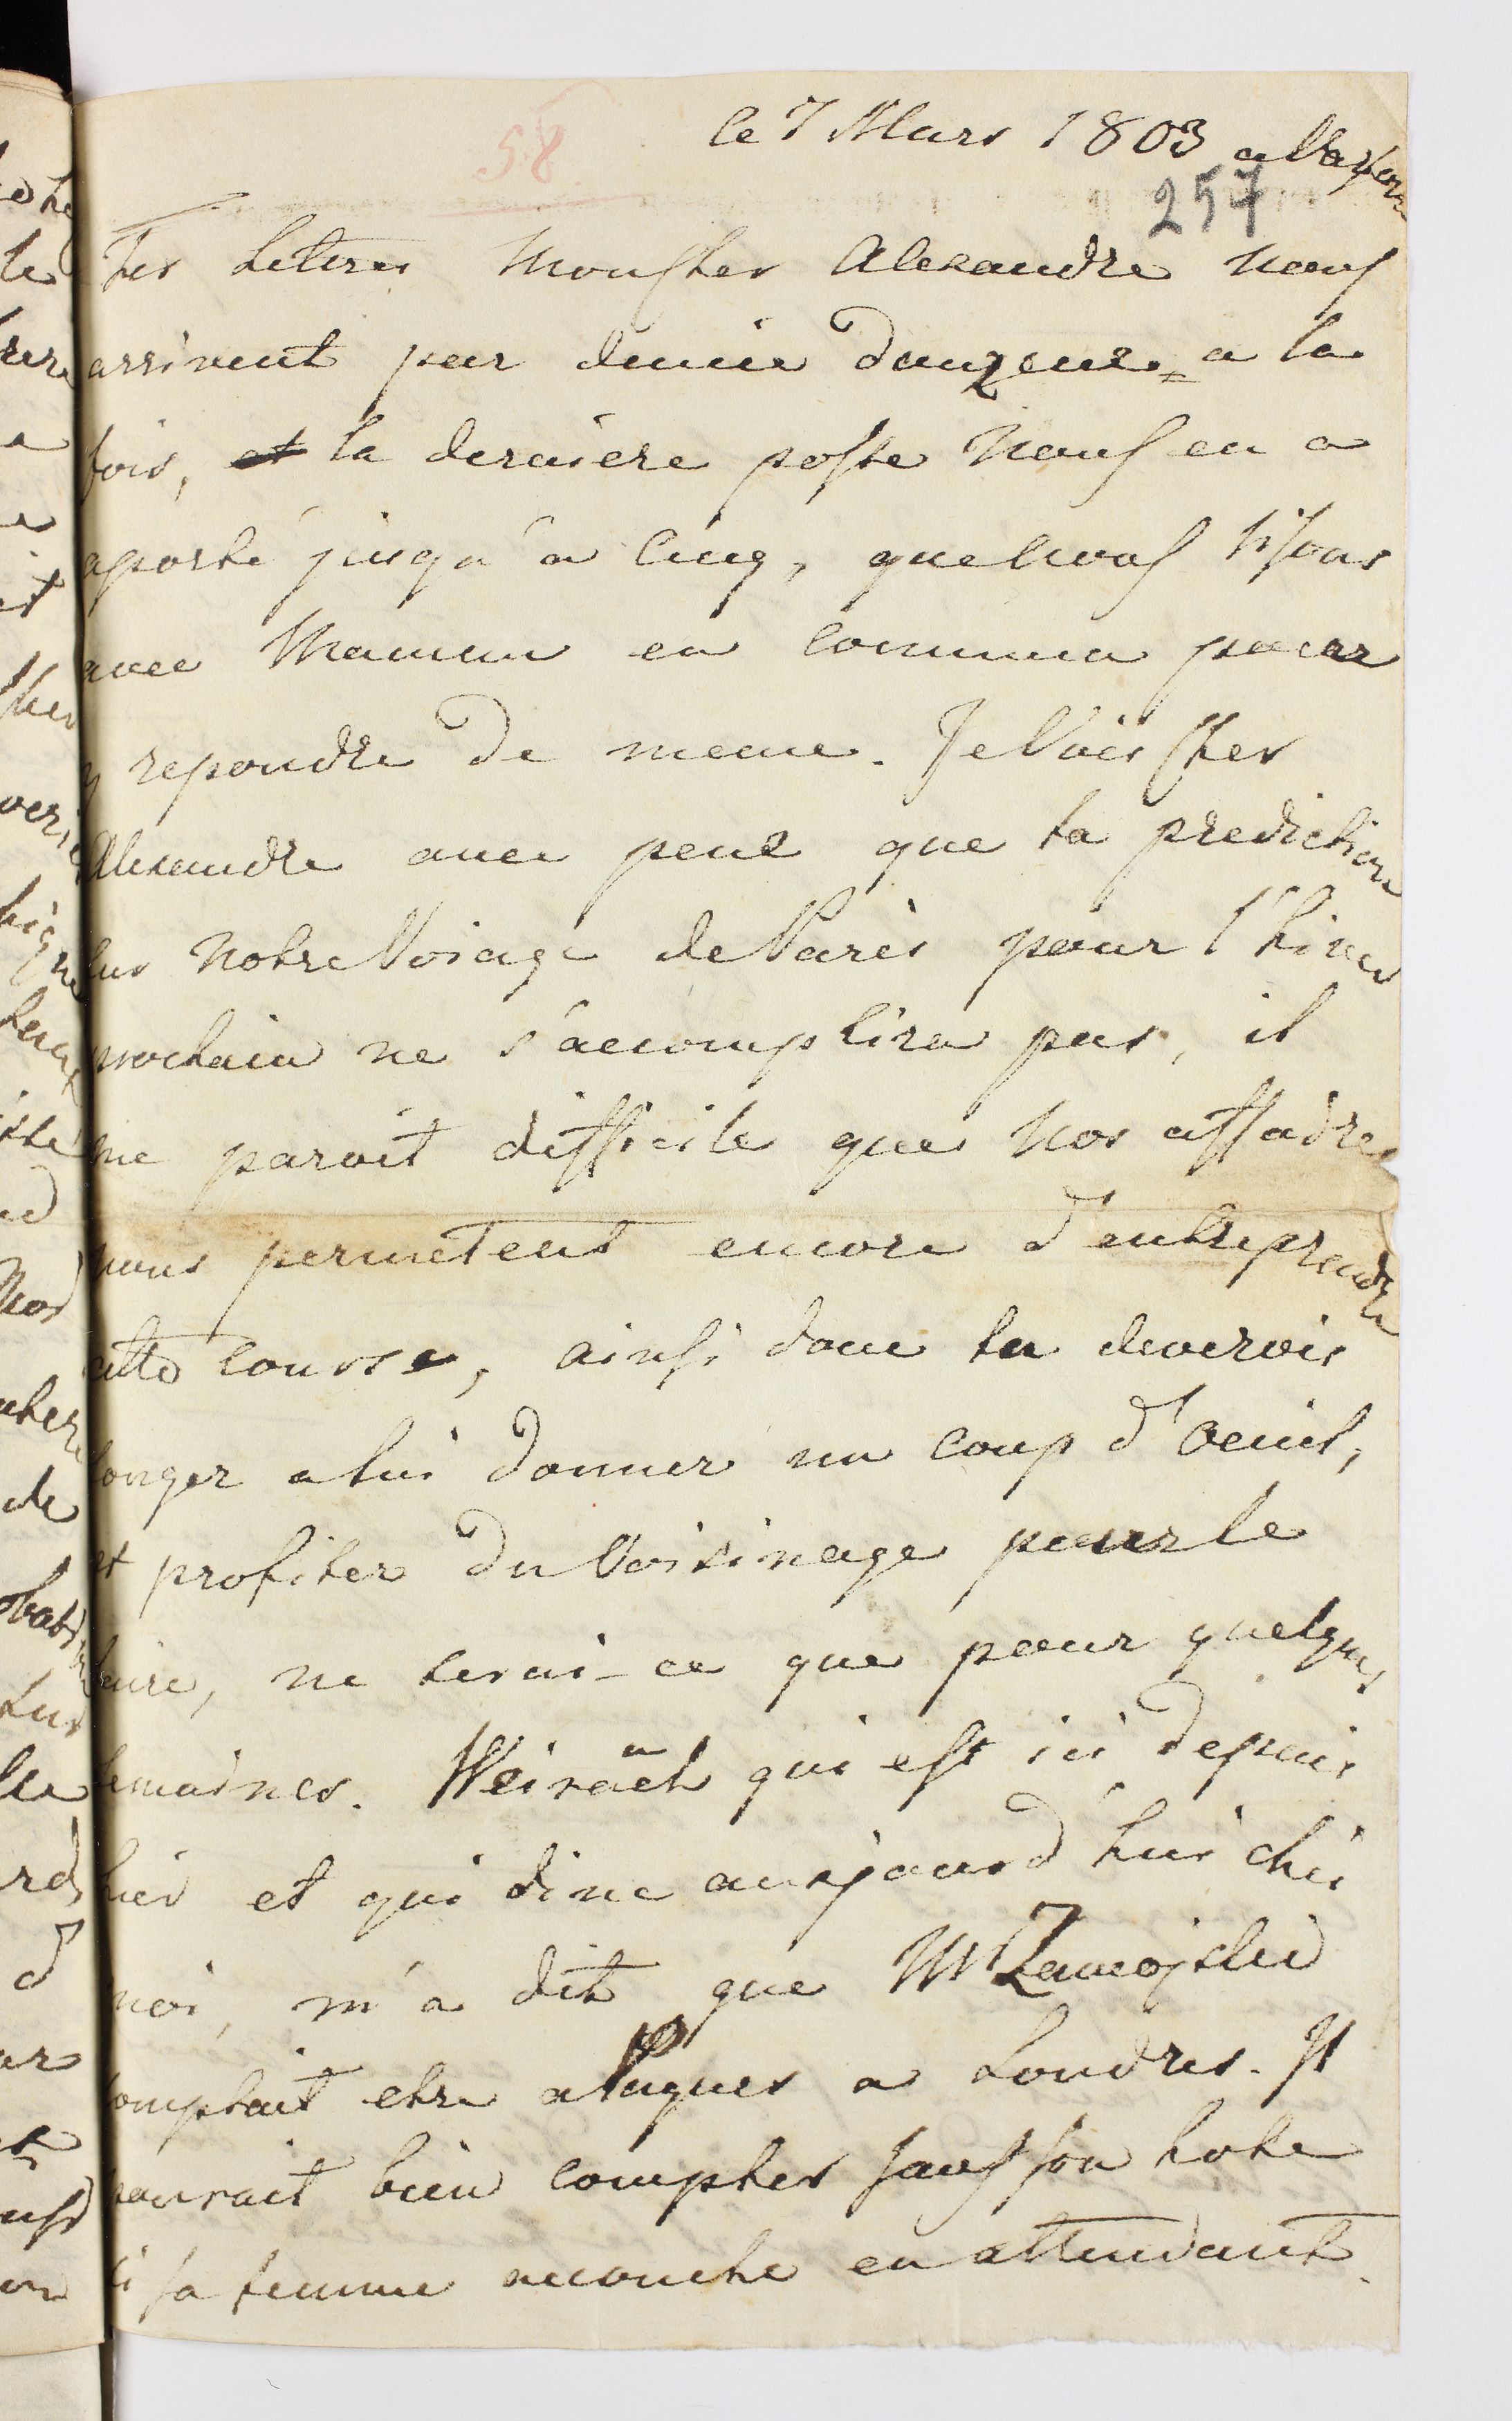 58.
le 7 Mars 1803 a Varsov
257
Tes Lettres Moncher Alexandre nous
arrivent par demie douzeine a la
fois, et la derniere poste nous en a
aporté jusqu'a cinq, que nous lisons
avec Maman en commun pour
y repondre de meme. Je Vois cher
Alexandre avec peine que ta prediction
sur notre Voiage de Paris pour l'hiver
prochain ne s'accomplira pas, il
me paroit difficile que nos affaires
nous permetent encore d'entreprendre
cette course, ainsi donc tu deverois
songer a lui donner un coup d'oeuil,
et profiter du Voisinage pour le
faire, ne serai-ce que pour quelques
semaines. qui est ici depuis
hier et qui dine aujourd'hui chés
moi, m'a dit que Mr Zamojski
comptait etre a Paques a Londres. Il
pourait bien compter sans son hote
si sa femme accouche en attendant.